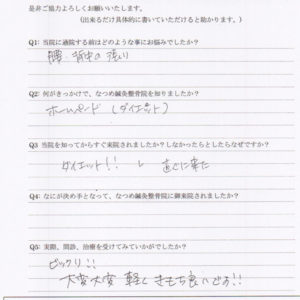 是非ご協力よろしくお願いいたします。
(出来るだけ具体的に書いていただけると助かります。)
Q1: 当院に通院する前はどのような事にお悩みでしたか?
腰 背中の張り
Q2: 何がきっかけで、なつめ鍼灸整骨院を知りましたか?
ホームページ (ダイエット)
Q3 当院を知ってからすぐ来院されましたか?しなかったとしたらならなぜですか?
ダイエット!! し 直ぐに来た
Q4: なにが決め手となって、なつめ鍼灸整骨院に御来院されましたか?
Q5: 実際、問診、治療を受けてみていかがでしたか?
ビックリ!!
大変大変 軽く きもち良いどう!!